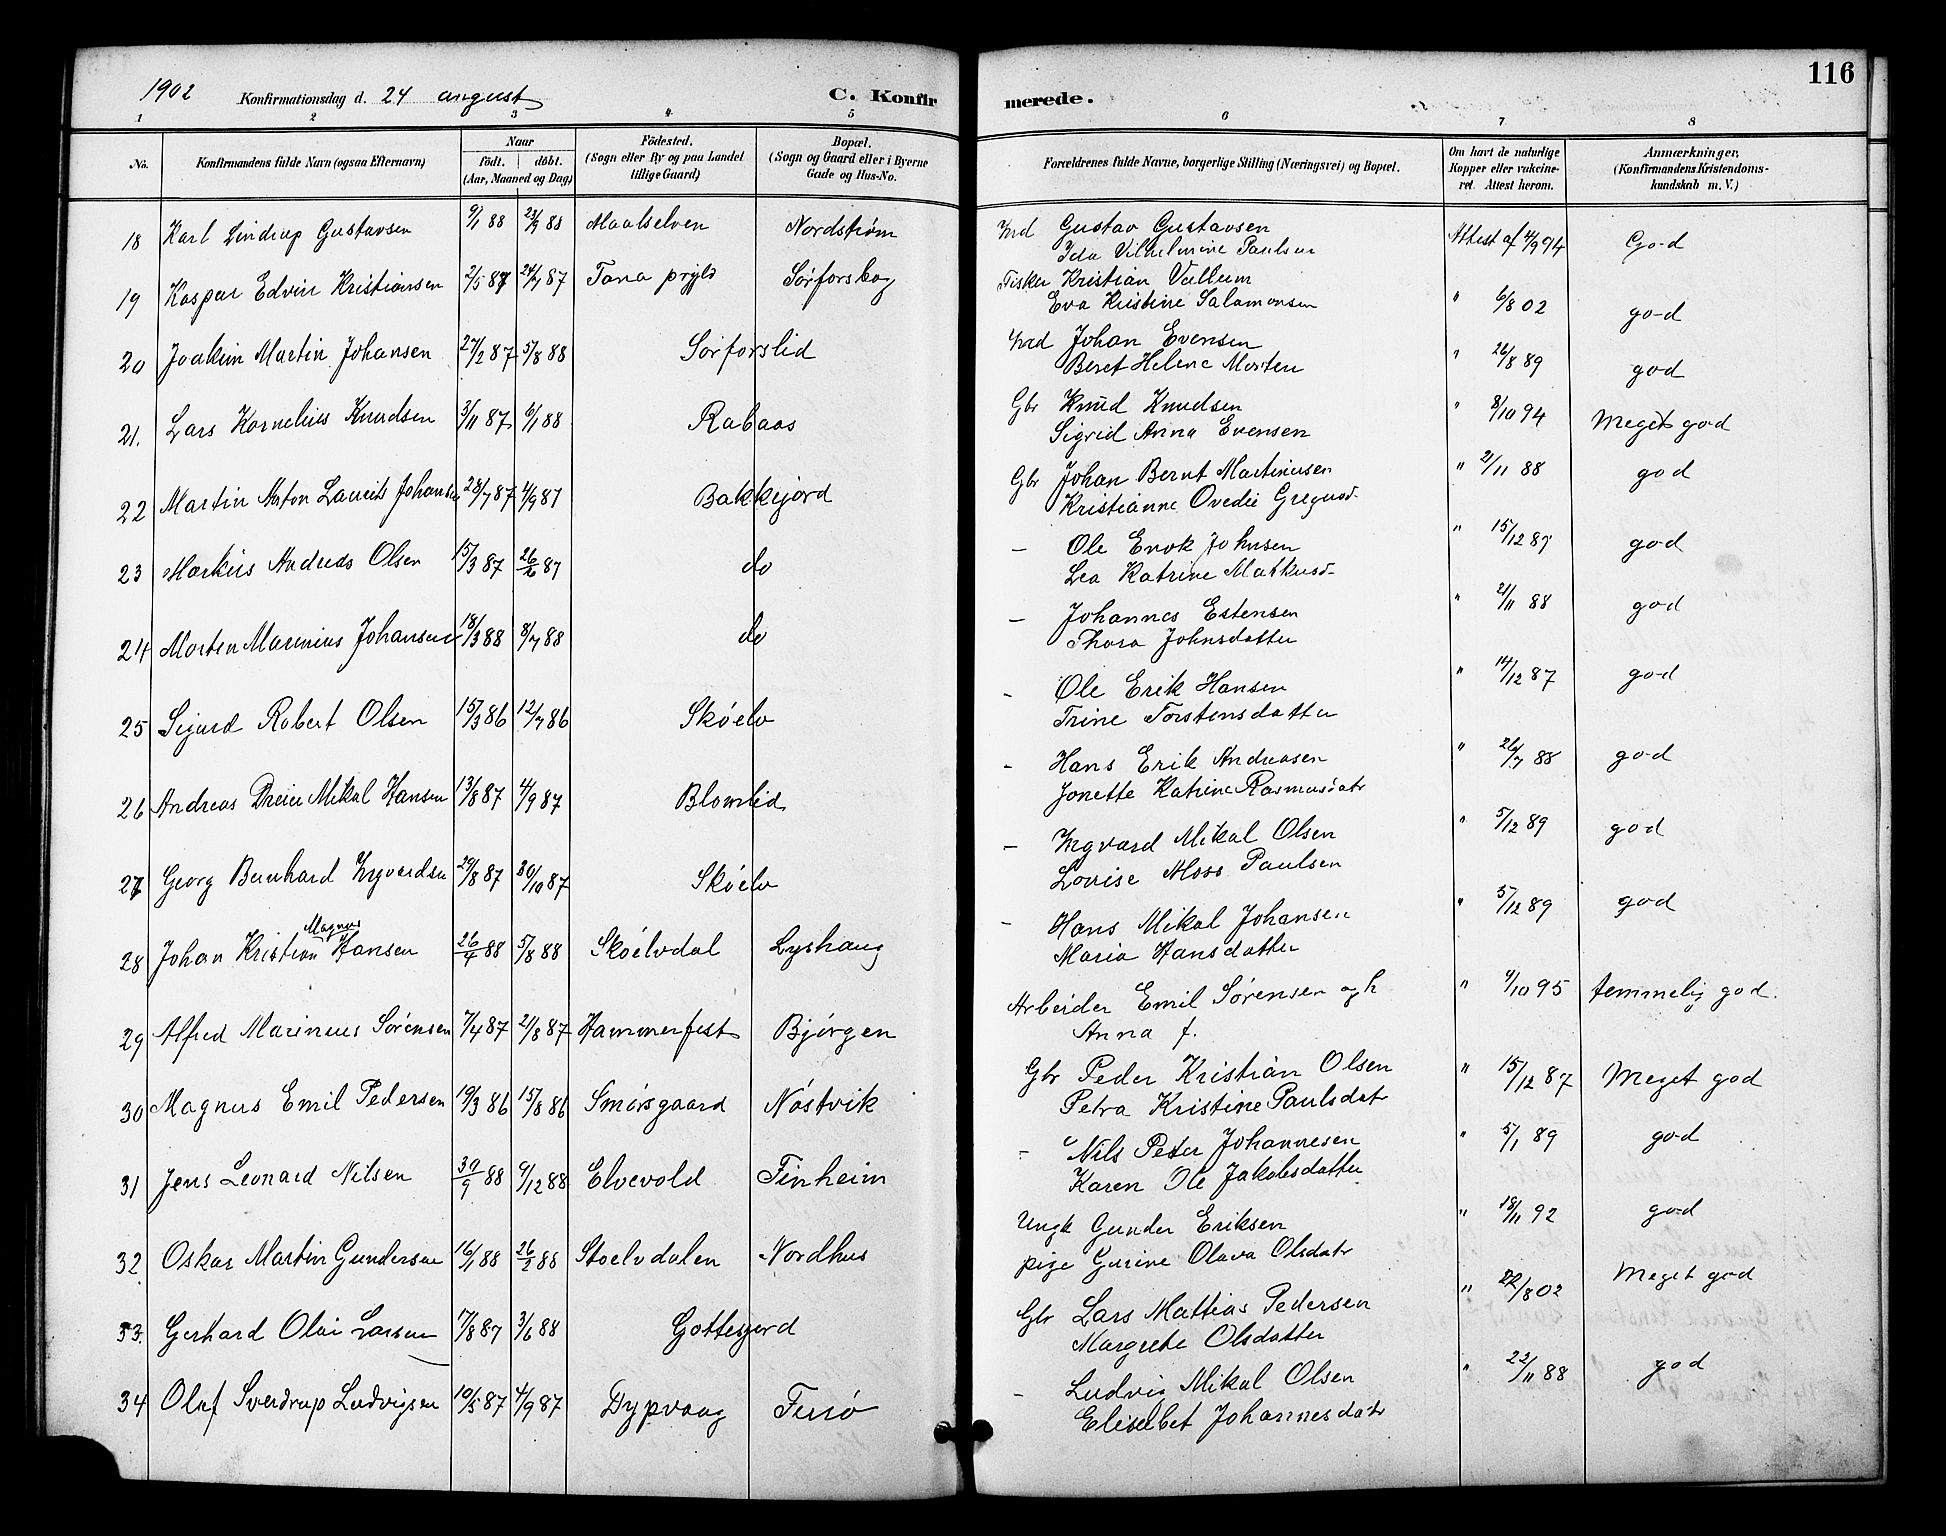 116
1902 Konfirmationsdag d. 24 august C. Konfirmerede.
1 2 3 4 5 6 7 8
No.
Konfirmandens fulde Navn (ogsaa Efternavn)
Naar
født. døbt.
(Aar, Maaned og Dag)
Fødested.
(Sogn eller By og paa Landet
tillige Gaard)
Bopæl.
(Sogn og Gaard eller i Byerne
Gade og Hus-No.
Forældrenes fulde Navne, borgerlige Stilling (Næringsvei) og Bopæl.
Om havt de naturlige
Kopper eller vakcine-
ret. Attest herom.
Anmærkninger,
(Konfirmandens Kristendoms-
kundskab m. V.)
18 Karl Lindrup Gustavsen 9/1 88 23/9 88 Maalselven Nordstrøm Ind Gustav Gustavsen Attest af 4/9 94 God
Ida Vilhelmine Paulsen
19 Kaspar Edvin Kristiansen 2/5 87 24/7 87 Tana prgjld Sørforsbog Fisker Kristian Vullum " 6/8 02 god
Eva Kristine Salamonsen
20 Joakim Martin Johansen 27/2 87 5/8 88 Sørforslid Ind Johan Evensen " 26/8 89 god
Beret Helene Morten
21. Lars Kornelius Knudsen 3/11 87 6/1 88 Rabaas Gbr Knud Knudsen " 8/10 94 Meget god
Sigrid Anna Evensen
22 Martin Anton Laurits Johansen 28/7 87 4/9 87 Bakkejord Gbr Johan Bernt Martinusen " 21/11 88 god
Kristianne Ovedie Gregusd-
23 Markus Andreas Olsen 15/3 87 26/6 87 do – Ole Enok Johnsen " 15/12 87 god
Lea Katrine Markusd-
24 Morten Marinius Johansen 18/3 88 8/7 88 do – Johannes Estensen " 21/11 88 god
Thora Johnsdatter
25 Sigurd Robert Olsen 15/3 86 12/7 86 Skøelv – Ole Erik Hansen " 14/12 87 god
Trine Torstensdatter
26 Andreas Dreier Mikal Hansen 13/8 87 4/9 87 Blomlid – Hans Erik Andreasen " 26/7 88 god
Jonette Katrine Rasmusdatr
27 Georg Bernhard Ingvardsen 29/8 87 30/10 87 Skøelv – Ingvard Mikal Olsen " 5/12 89 god
Lovise Moss Paulsen
Magnus
28 Johan Kristian Hansen 26/4 88 5/8 88 Skøelvdal Lyshaug – Hans Mikal Johansen " 5/12 89 god
Maria Hansdatter
29 Alfred Marineus Sørensen 7/4 87 21/8 87 Hammerfest Bjørgen Arbeider Emil Sørensen og h " 4/10 95 temmelig god.
Anna f.
30 Magnus Emil Pedersen 19/3 86 15/8 86 Smørsgaard Nöstvik Gbr Peder Kristian Olsen " 15/12 87 Meget god
Petra Kristine Paulsdatr
31 Jens Leonard Nilsen 30/9 88 9/12 88 Elvevold Finheim – Nils Peter Johannesen " 5/1 89 god
Karen Ole Jakobsdatter
32 Oskar Martin Gundersen 16/1 88 26/2 88 Stoelvdalen Nordhus Ungk Gunder Eriksen " 18/11 92 god
pige Gurine Olava Olsdatr
33. Gerhard Olai Larsen 17/8 87 3/6 88 Gottesjord Gbr Lars Mattias Pedersen " 22/8 02 Meget god
Margrete Olsdatter
34 Oluf Sverdrup Ludvigsen 10/5 87 4/9 87 Dypvaag – Ludvig Mikal Olsen " 22/11 88 god
Eliselbet Johannesdatr